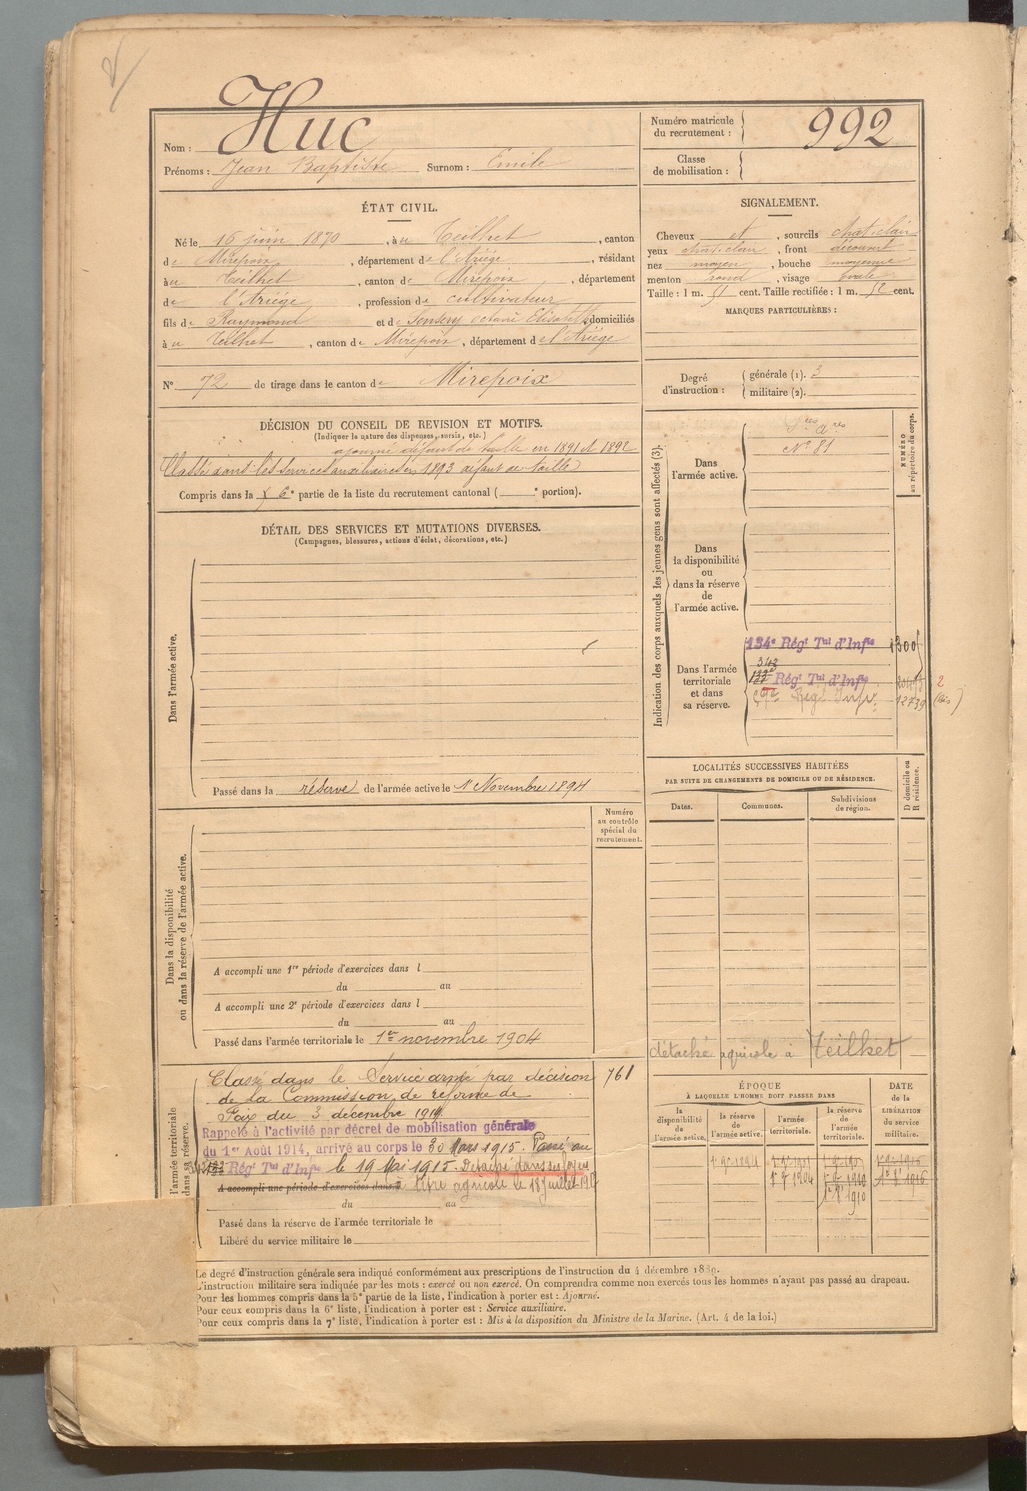 Nom : Huc
Prénoms : Jean Baptiste Surnom : Emile
Numéro matricule du recrutement : 992
Classe de mobilisation :
ÉTAT CIVIL.
Né le 16 juin 1870, à u Teilhet, canton
de Mirepoix, département de l'Ariège, résidant
à u Teilhet, canton de Mirepoix, département
de l'Ariège, profession de cultivateur
fils de Raymond et de domiciliés
à u Teilhet, canton de Mirepoix, département de l'Ariège
N° 72 de tirage dans le canton de Mirepoix
SIGNALEMENT.
Cheveux et, sourcils chat. clair
yeux chat. clair, front découvert
nez moyen, bouche moyenne
menton rond, visage ovale
Taille : 1 m. 51 cent. Taille rectifiée : 1 m. 52 cent.
MARQUES PARTICULIÈRES :
Degré d'instruction : générale (1). 3
militaire (2).
DÉCISION DU CONSEIL DE REVISION ET MOTIFS.
(Indiquer la nature des dispenses, sursis, etc.)
ajourné défaut de taille en 1891 et 1892
Classé dans les services auxiliaires en 1893 défaut de taille
Compris dans la 6e partie de la liste du recrutement cantonal ( e portion).
DÉTAIL DES SERVICES ET MUTATIONS DIVERSES.
(Campagnes, blessures, actions d'éclat, décorations, etc.)
Dans l'armée active.
Passé dans la réserve de l'armée active le 1er Novembre 1894
Indication des corps auxquels les jeunes gens sont affectés (3).
NUMÉRO au répertoire du corps.
Dans l'armée active.
N° 81
Dans la disponibilité ou dans la réserve de l'armée active.
Dans l'armée territoriale et dans sa réserve.
134e Régt Tal d'Infie 1300
343
133e Régt Tal d'Infie
Régt Infie 12739 (bis)
2
LOCALITÉS SUCCESSIVES HABITÉES
PAR SUITE DE CHANGEMENTS DE DOMICILE OU DE RÉSIDENCE.
D domicile ou R résidence.
Dates. Communes. Subdivisions de région.
détaché agricole à Teilhet
Numéro au contrôle spécial du recrutement.
Dans la disponibilité ou dans la réserve de l'armée active.
A accompli une 1re période d'exercices dans l
du au
A accompli une 2e période d'exercices dans l
du au
Passé dans l'armée territoriale le 1er novembre 1904
Classé dans le Service armé par décision 761
de la Commission de réforme de
Foix du 3 décembre 1914
Rappelé à l'activité par décret de mobilisation générale
du 1er Août 1914, arrivé au corps le 30 Mars 1915. Passé au
Régt Tal d'Infie le 19 Mai 1915. Détaché dans ses foyers
A accompli une période d'exercices dans
titre agricole le 18 juillet
du au
Passé dans la réserve de l'armée territoriale le
Libéré du service militaire le
l'armée territoriale
dans sa réserve.
ÉPOQUE
À LAQUELLE L'HOMME DOIT PASSER DANS
DATE de la LIBÉRATION du service militaire.
la disponibilité de l'armée active. la réserve de l'armée active. l'armée territoriale. la réserve de l'armée territoriale.
Le degré d'instruction générale sera indiqué conformément aux prescriptions de l'instruction du 4 décembre 1889.
L'instruction militaire sera indiquée par les mots : exercé ou non exercé. On comprendra comme non exercés tous les hommes n'ayant pas passé au drapeau.
Pour les hommes compris dans la 5e partie de la liste, l'indication à porter est : Ajourné.
Pour ceux compris dans la 6e liste, l'indication à porter est : Service auxiliaire.
Pour ceux compris dans la 7e liste, l'indication à porter est : Mis à la disposition du Ministre de la Marine. (Art. 4 de la loi.)